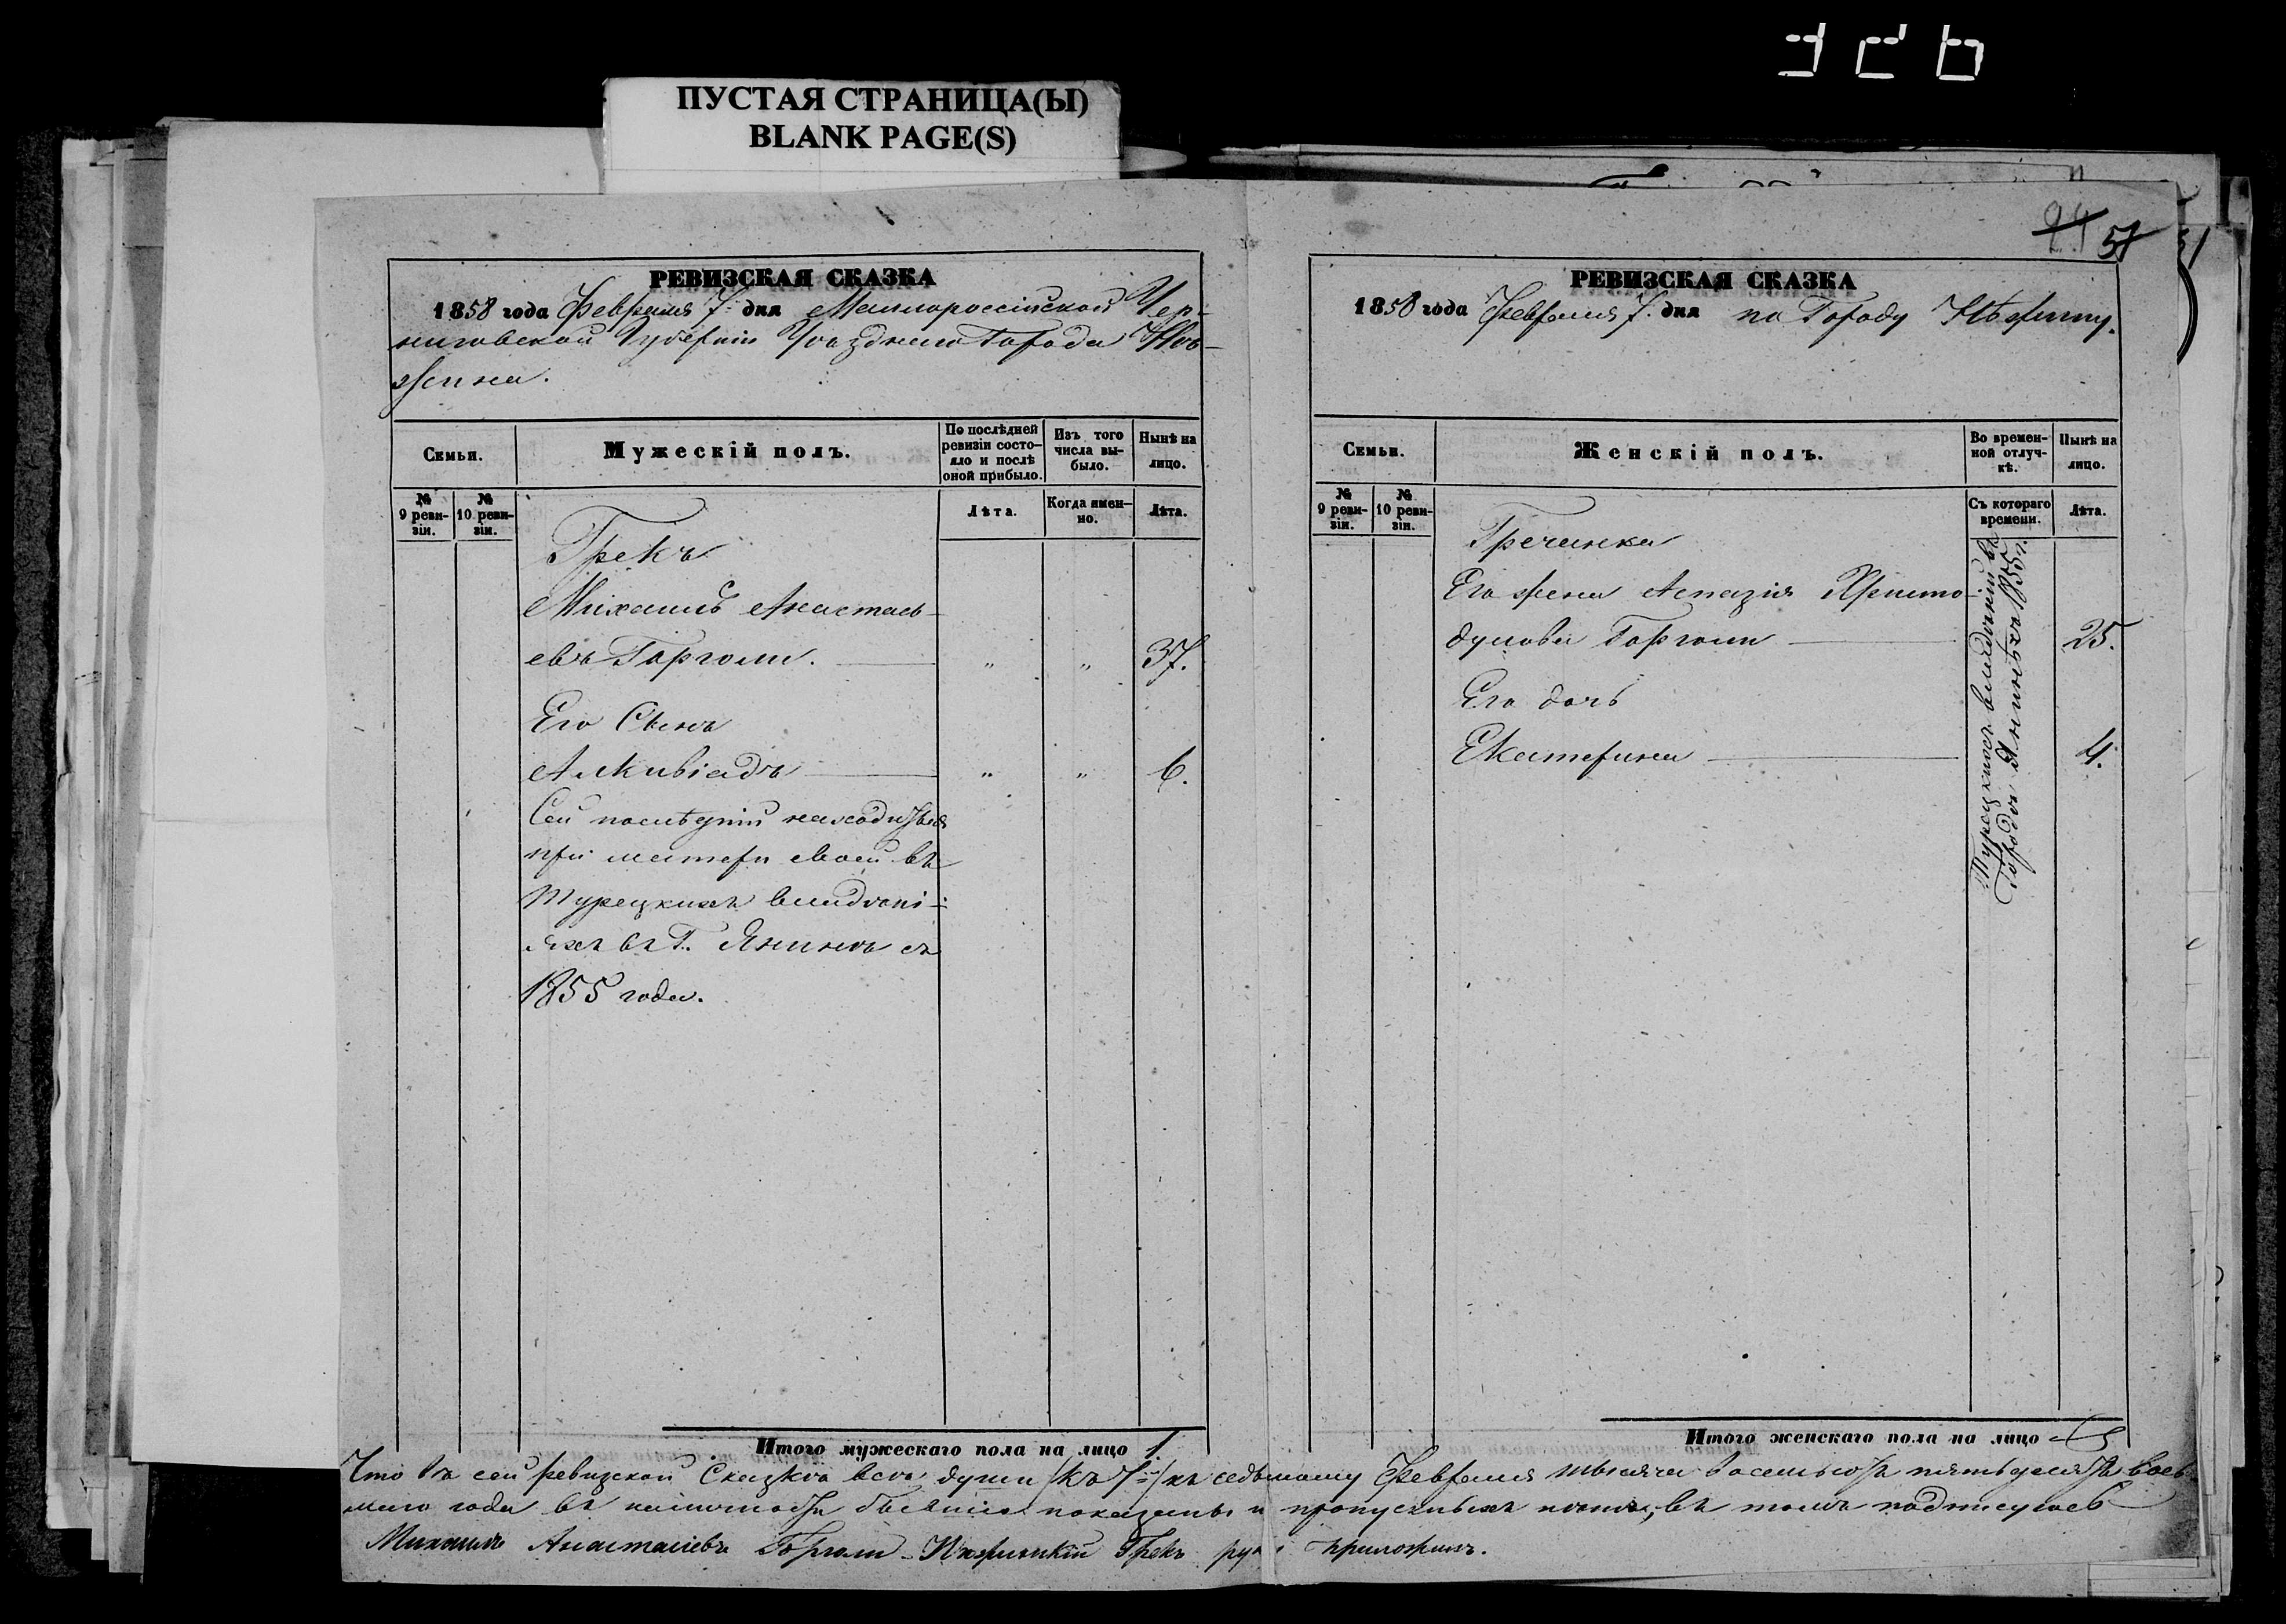 ПУСТАЯ СТРАНИЦА(Ы)
BLANK PAGE(S)
РЕВИЗСКАЯ СКАЗКА
1858 года Февраля 7. дня Малороссійской Чер-
ниговской Губерніи Уѣзднаго Города Нѣ-
жина.
Семьи.
Мужескій полъ.
По послѣдней
ревизіи состо-
яло и послѣ
оной прибыло.
Изъ того
числа вы-
было.
Нынѣ на
лицо.
№
9 реви-
зіи.
№
10 реви-
зіи.
Лѣта.
Когда имен-
но.
Лѣта.
Грекъ
Михаилъ Анастась-
евъ Горголи. „ „ 37.
Его Сынъ
Алкивіадъ „ „ 6.
Сей послѣдній находится
при матери своей въ
Турецкихъ владѣні-
яхъ въ Г. Янинѣ съ
1855 года.
Итого мужескаго пола на лицо 1
24 51
РЕВИЗСКАЯ СКАЗКА
1858 года Февраля 7. дня по Городу Нѣжину.
Семьи.
Женскій полъ.
Во времен-
ной отлуч-
кѣ.
Нынѣ на
лицо.
№
9 реви-
зіи.
№
10 реви-
зіи.
Съ котораго
времени.
Лѣта.
Гречанка
Его жена Аспазія Христо-
дулова Горголи 25.
Его дочь
Екатерина 4.
Турецкихъ владѣній въ
Городѣ Янинѣ съ 1855 г.
Итого женскаго пола на лицо
Что въ сей ревизской Сказкѣ всѣ души /къ 7/ къ седьмому Февраля тысяча восемьсотъ пятьдесятъ вось-
маго года въ наличности бывшіе показаны и пропускныхъ нѣтъ, въ томъ подписуюсь
Михаилъ Анастасіевъ Горголи Нѣжинскій Грекъ руку приложилъ.